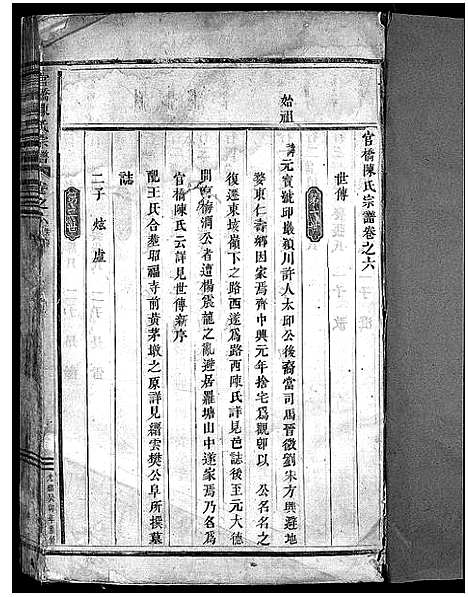 官橋陳氏宗譜卷之六
世傳
始祖
諱元寶號印巖潁川許人太邱公後裔當司馬晉微劉宋方興避地
婺東仁壽鄉因家焉齊中興元年捨宅爲觀卽以 公名名之
復遷東垓嶺下之路西遂爲路西陳氏詳見邑誌後至元大德
間 梅澗公者遭楊震龍之亂避居羅塘山中遂家焉乃名爲
官橋陳氏云詳見世傳新序
配王氏合塟昭福寺前黃茅墩之原詳見縉雲樊公阜所撰墓
誌
二子 炫 盧
官橋陳氏宗譜
卷之六